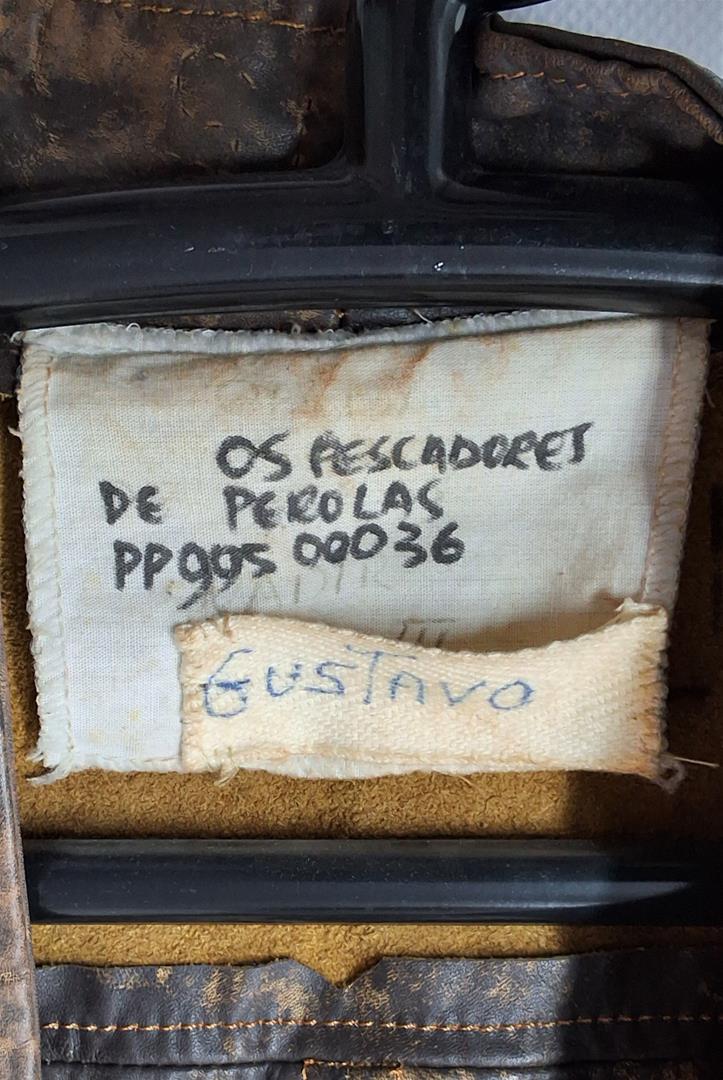 OS PESCADORES
DE PEROLAS
PP995 00036
GUSTAVO